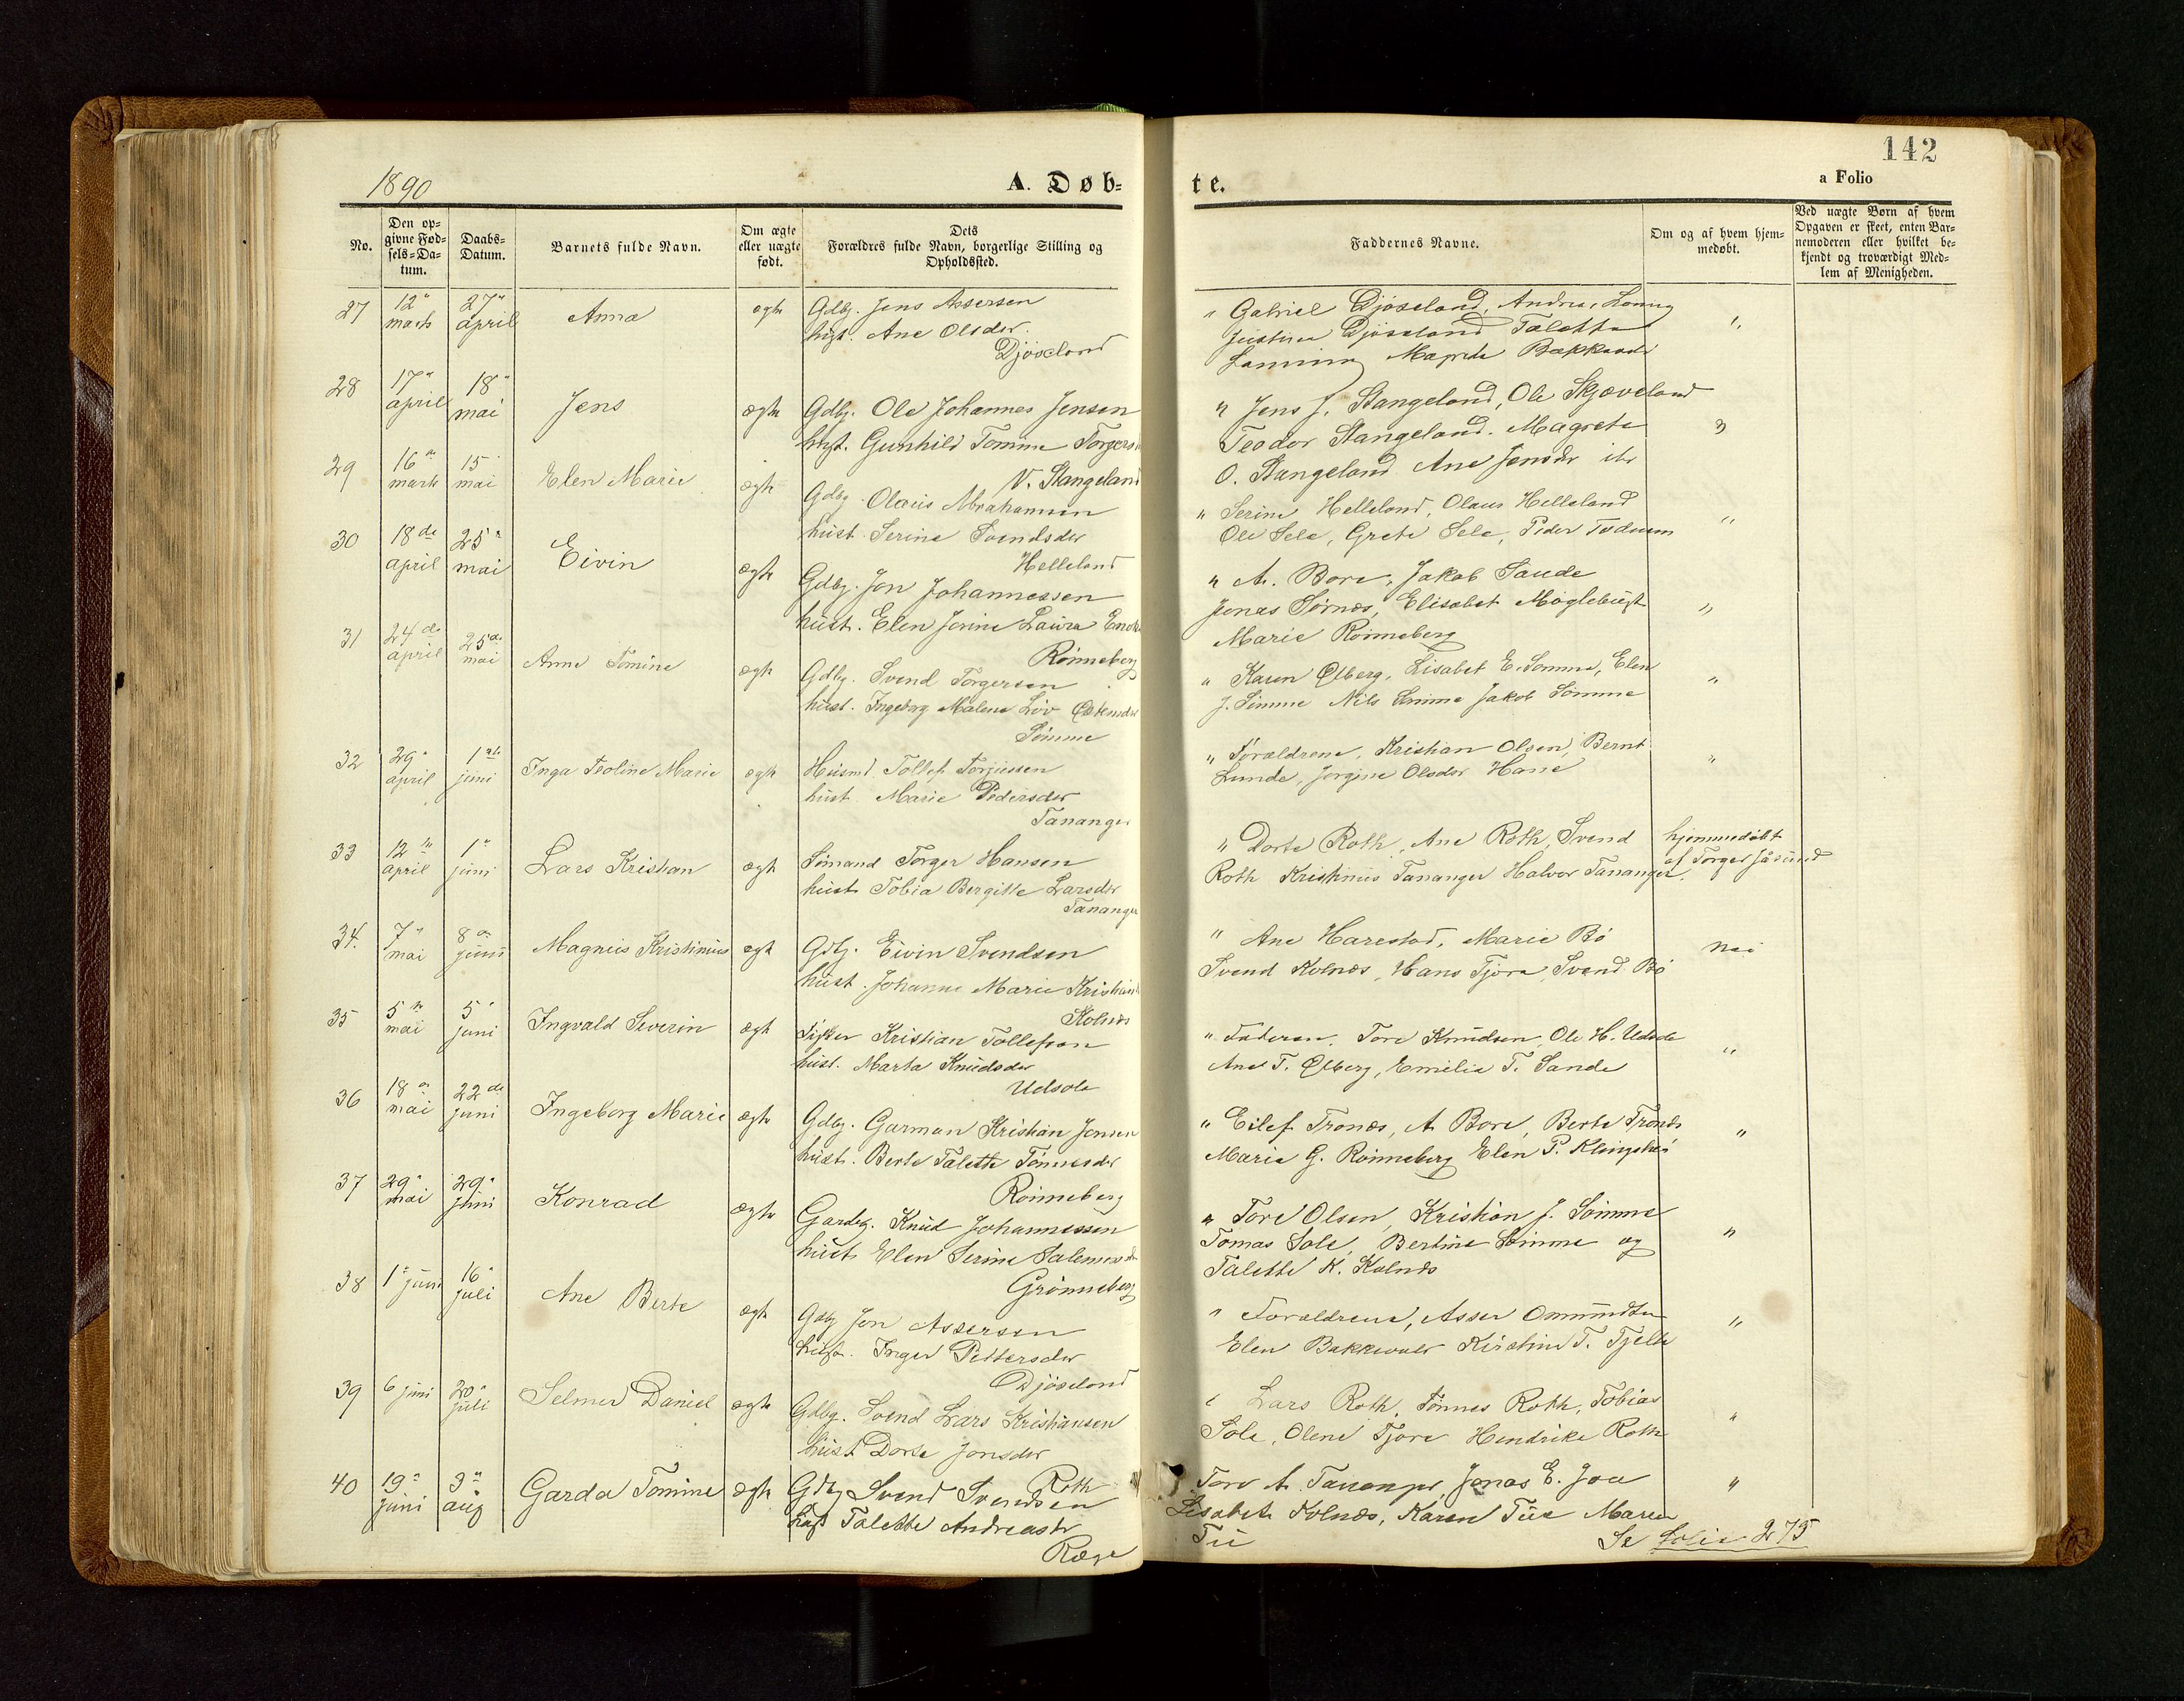 142
1890
A. Døb=
te.
a Folio
No.
Den op=
givne Fød=
sels=Da=
tum.
Daabs=
Datum.
Barnets fulde Navn.
Om ægte
eller uægte
født.
Dets
Forældres fulde Navn, borgerlige Stilling og
Opholdssted.
Faddernes Navne.
Om og af hvem hjem=
medøbt.
Ved uægte Børn af hvem
Opgaven er skeet, enten Bar=
nemoderen eller hvilket be=
kjendt og troværdigt Med=
lem af Menigheden.
27 12" marts 27" april Anna ægte Gdbg. Jens Assersen
hust. Ane Olsdr.
Djøseland
" Gabriel Djøseland, Andrea
Justina Djøseland Talette
Magrete "
28 17" april 18" mai Jens ægte Gdbg. Ole Johannes Jensen
hust. Gunhild Tomine
V. Stangeland
" Jens J. Stangeland, Ole Skjæveland
Teodor Stangeland. Magrete
O. Stangeland Ane Jensdr "
29 16" marts 15 mai Elen Marie ægte Gdbg. Olaus Abrahamsen
hust. Serine Svendsdr
Helleland
" Serine Helleland, Olaus Helleland
Ole Sele, Grete Sele, Peder "
30 18de april 25" mai Eivin ægte Gdbg. Jon Johannessen
hust. Elen Jorine Laura
Rønneberg
" A. Bore, Jakob Sande
Jonas Sørnæs, Elisabet Møglebust
Marie Rønneberg "
31 24de april 25de mai Anne Tomine ægte Gdbg. Svend Torgersen
hust. Ingeborg Malene
Sømme
" Karen Ølberg, Lisabet E. Somme, Elen
J. Sømme Nils Sømme Jakob Sømme "
32 29" april 1ste juni Inga Teoline Marie ægte Husmd. Tollef Torjussen
hust. Marie Pedersdr
Tananger
" Forældrene, Kristian Olsen, Bernt
Lunde, Jorgine Olsdr Hane "
33 12te april 1" juni Lars Kristian ægte Sømand Torger Hansen
hust. Tobia Bergitte Larsdr
Tananger
" Dorte Roth, Ane Roth, Svend
Roth Kristinus Tananger Halvor Tananger.
hjemmedøbt
af Torger Jåsund
34. 7" mai 8" juni Magnus Kristinius ægt Gdbg. Eivin Svendsen
hust. Johanne Marie
Kolnæs
" Ane Harestad, Marie Bø
Svend Kolnæs, Hans Tjora Svend Bø
nei
35 5te mai 5" juni Ingvald Severin ægt Kristian Tollefsen
hust. Marta Knudsdr
Udsola
" Faderen, Tore Knudsen, Ole H. Udsola
Ane T. Ølberg, Emilie T. Sande "
36 18" mai 22de juni Ingeborg Marie ægte Gdbg. Garman Kristian Jensen
hust. Berte Talette Tønnesdr
Rønneberg
" Eilef Tronæs, A. Bore, Berte Tronæs
Marie G. Rønneberg Elen P. "
37 29" mai 29" juni Konrad ægte Gardbg. Knud Johannessen
hust. Elen Serine
Grønneberg
" Tore Olsen, Kristian J. Sømme
Tomas Sole, Bertine Sømme og
Talette K. Kolnæs "
38 1" juni 16" juli Ane Berte ægte Gdbg Jon Assersen
hust. Inger Pettersdr
Djøseland
" Forældrene, Asser
Elen Kirstine T. Tjelta "
39 6 juni 20" juli Selmer Daniel ægte Gdbg. Svend Lars Kristiansen
hust Dorte Jonsdr
Roth
" Lars Roth, Tønnes Roth, Tobias
Sole, Olene Tjora Hendrike Roth "
40 19" juni 3" aug Garda Tomine ægte Gdbg Svend Svendsen
hust Talette Andreasdr
Ræge
Tore A. Tananger, Jonas E. Joa
Lisabet Kolnæs, Karen Tue Maren
Tue "
Se folie 275